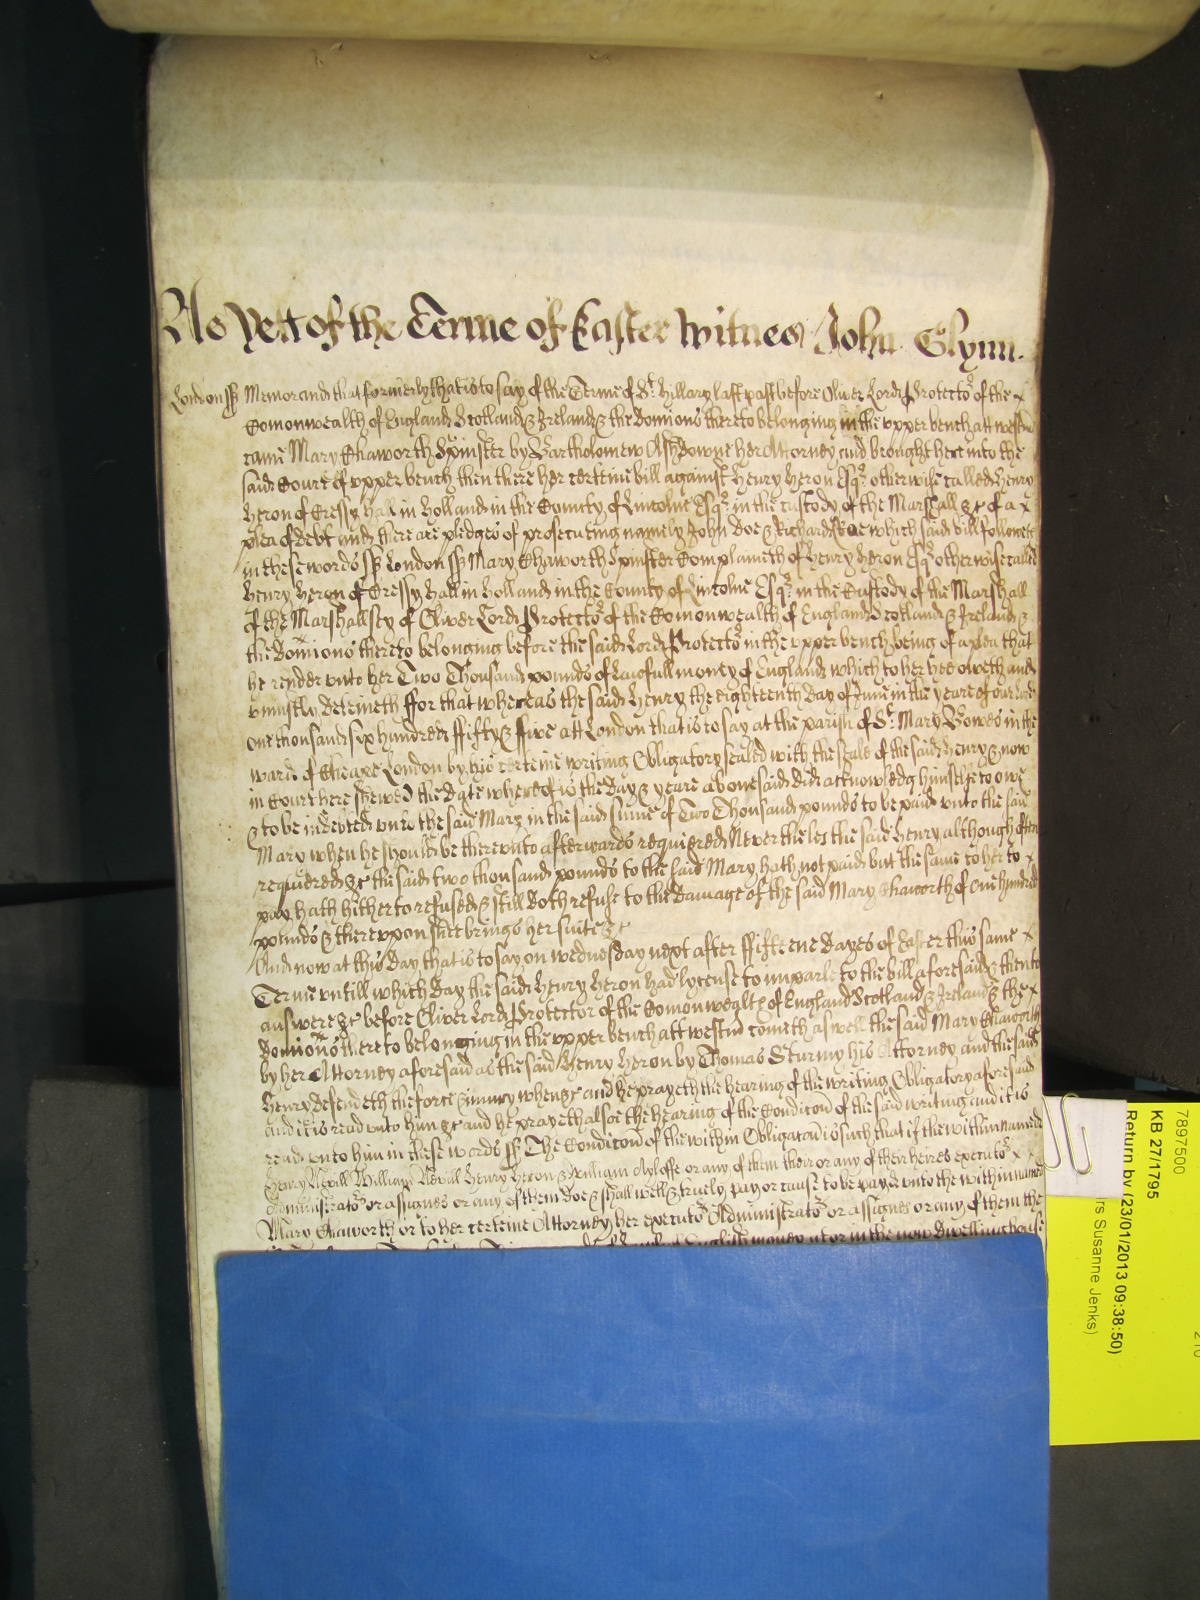 As Yett of the Terme of Easter Witnes John Glynn.
London ss Memorand that formerly that is to say of the Terme of St. Hillary last past before Oliver Lord Protector of the x
Comonwealth of England Scotland & Ireland & the Domions thereto belonging in the upper bench att westm
came Mary Chaworth Spinster by Bartholomew Ashdowne her Attorney and brought here into the
said Court of upper bench then there her certeine bill against Henry Heron Esqr. otherwise called Henry
Heron of Cressy Hall in Holland in the County of Lincolne Esqr. in the custody of the Marshall &c of a x
plea of debt and there are pledges of prosecuting namely John Doe & Richard Roe which said bill followeth
in these words ss London ss Mary Chaworth Spinster Complaineth of Henry Heron Esqr otherwise called
Henry Heron of Cressy Hall in Holland in the County of Lincolne Esqr. in the Custody of the Marshall
of the Marshallsey of Oliver Lord Protector of the Comonwealth of England Scotland & Ireland &
the Domions thereto belonging before the said Lord Protector in the upper bench being of a plea that
he render unto her Two Thousand pounds of lawfull money of England which to her hee oweth and
uniustly deteineth ffor that whereas the said Henry the eighteenth day of June in the yeare of our Lord
one thousand six hundred ffifty & ffive att London that is to say at the parish of St. Mary Bowes in the
ward of Cheape London by his certeine writing Obligatory sealed with the seale of the said Henry & now
in Court here shewed the date whereof is the day & yeare abovesaid did acknowledg himselfe to owe
& to be indebted unto the said Mary in the said sume of Two Thousand pounds to be paid unto the said
Mary when he should be thereunto afterwards requiered Neverthelesse the said Henry although often
requiered &c the said two thousand pounds to the said Mary hath not paid but the same to her to x
pay hath hitherto refused & still doth refuse to the damage of the said Mary Chaworth of one hundred
pounds & thereupon shee brings her suite &c
And now at this day that is to say on wednesday next after ffifteene dayes of Easter this same x
Terme untill which day the said Henry Heron had lycense to imparle to the bill aforesaid & then to
answere &c before Oliver Lord Protector of the Comonwealth of England Scotland & Ireland & the x
Domions thereto belonging in the upper bench att westm cometh aswell the said Mary Chaworth
by her Attorney aforesaid as the said Henry Heron by Thomas Sturmy his Attorney and the said
Henry defendeth the force & iniury when &c and he prayeth the hearing of the writing Obligatory aforesaid
and it is read unto him &c and he prayeth alsoe the hearing of the Condicon of the said writing and it is
read unto him in these words ss The Condicon of the within Obligacon is such that if the within named
Henry Nevill William Nevill Henry Heron & William Ayloffe or any of them their or any of their heires executors x x
Administrators or assignes or any of them doe & shall well & truely pay or cause to be payd unto the within named
Mary Chaworth or to her certeine Attorney her executors Administrators or assignes or any of them the
of English money att or in the now dwelling house
7897500
KB 27/1795
Return by (23/01/2013 09:38:50)
rs Susanne Jenks)